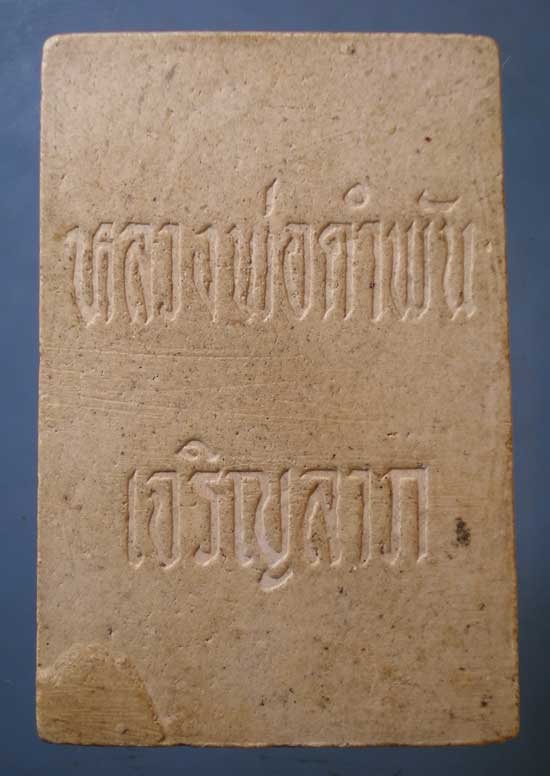 หลวงพ่อคำพัน
เจริญลาภ